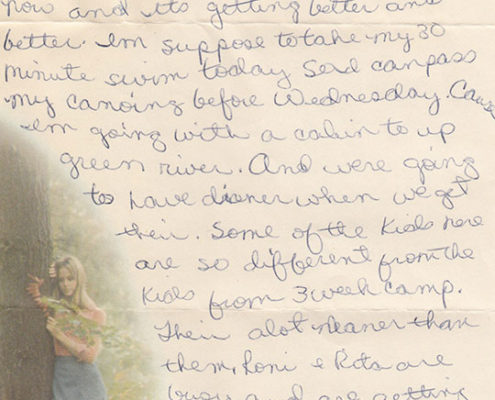 now and its getting better and
better. Im suppose to take my 30
minute swim today so I can pass
my canoing before Wednesday. Cause
Im going with a cabin to up
green river. And were going
to have dinner when we get
their. Some of the kids here
are so different from the
kids from 3 week camp.
Their alot meaner than
them, Roni & Rita are
busy and are getting